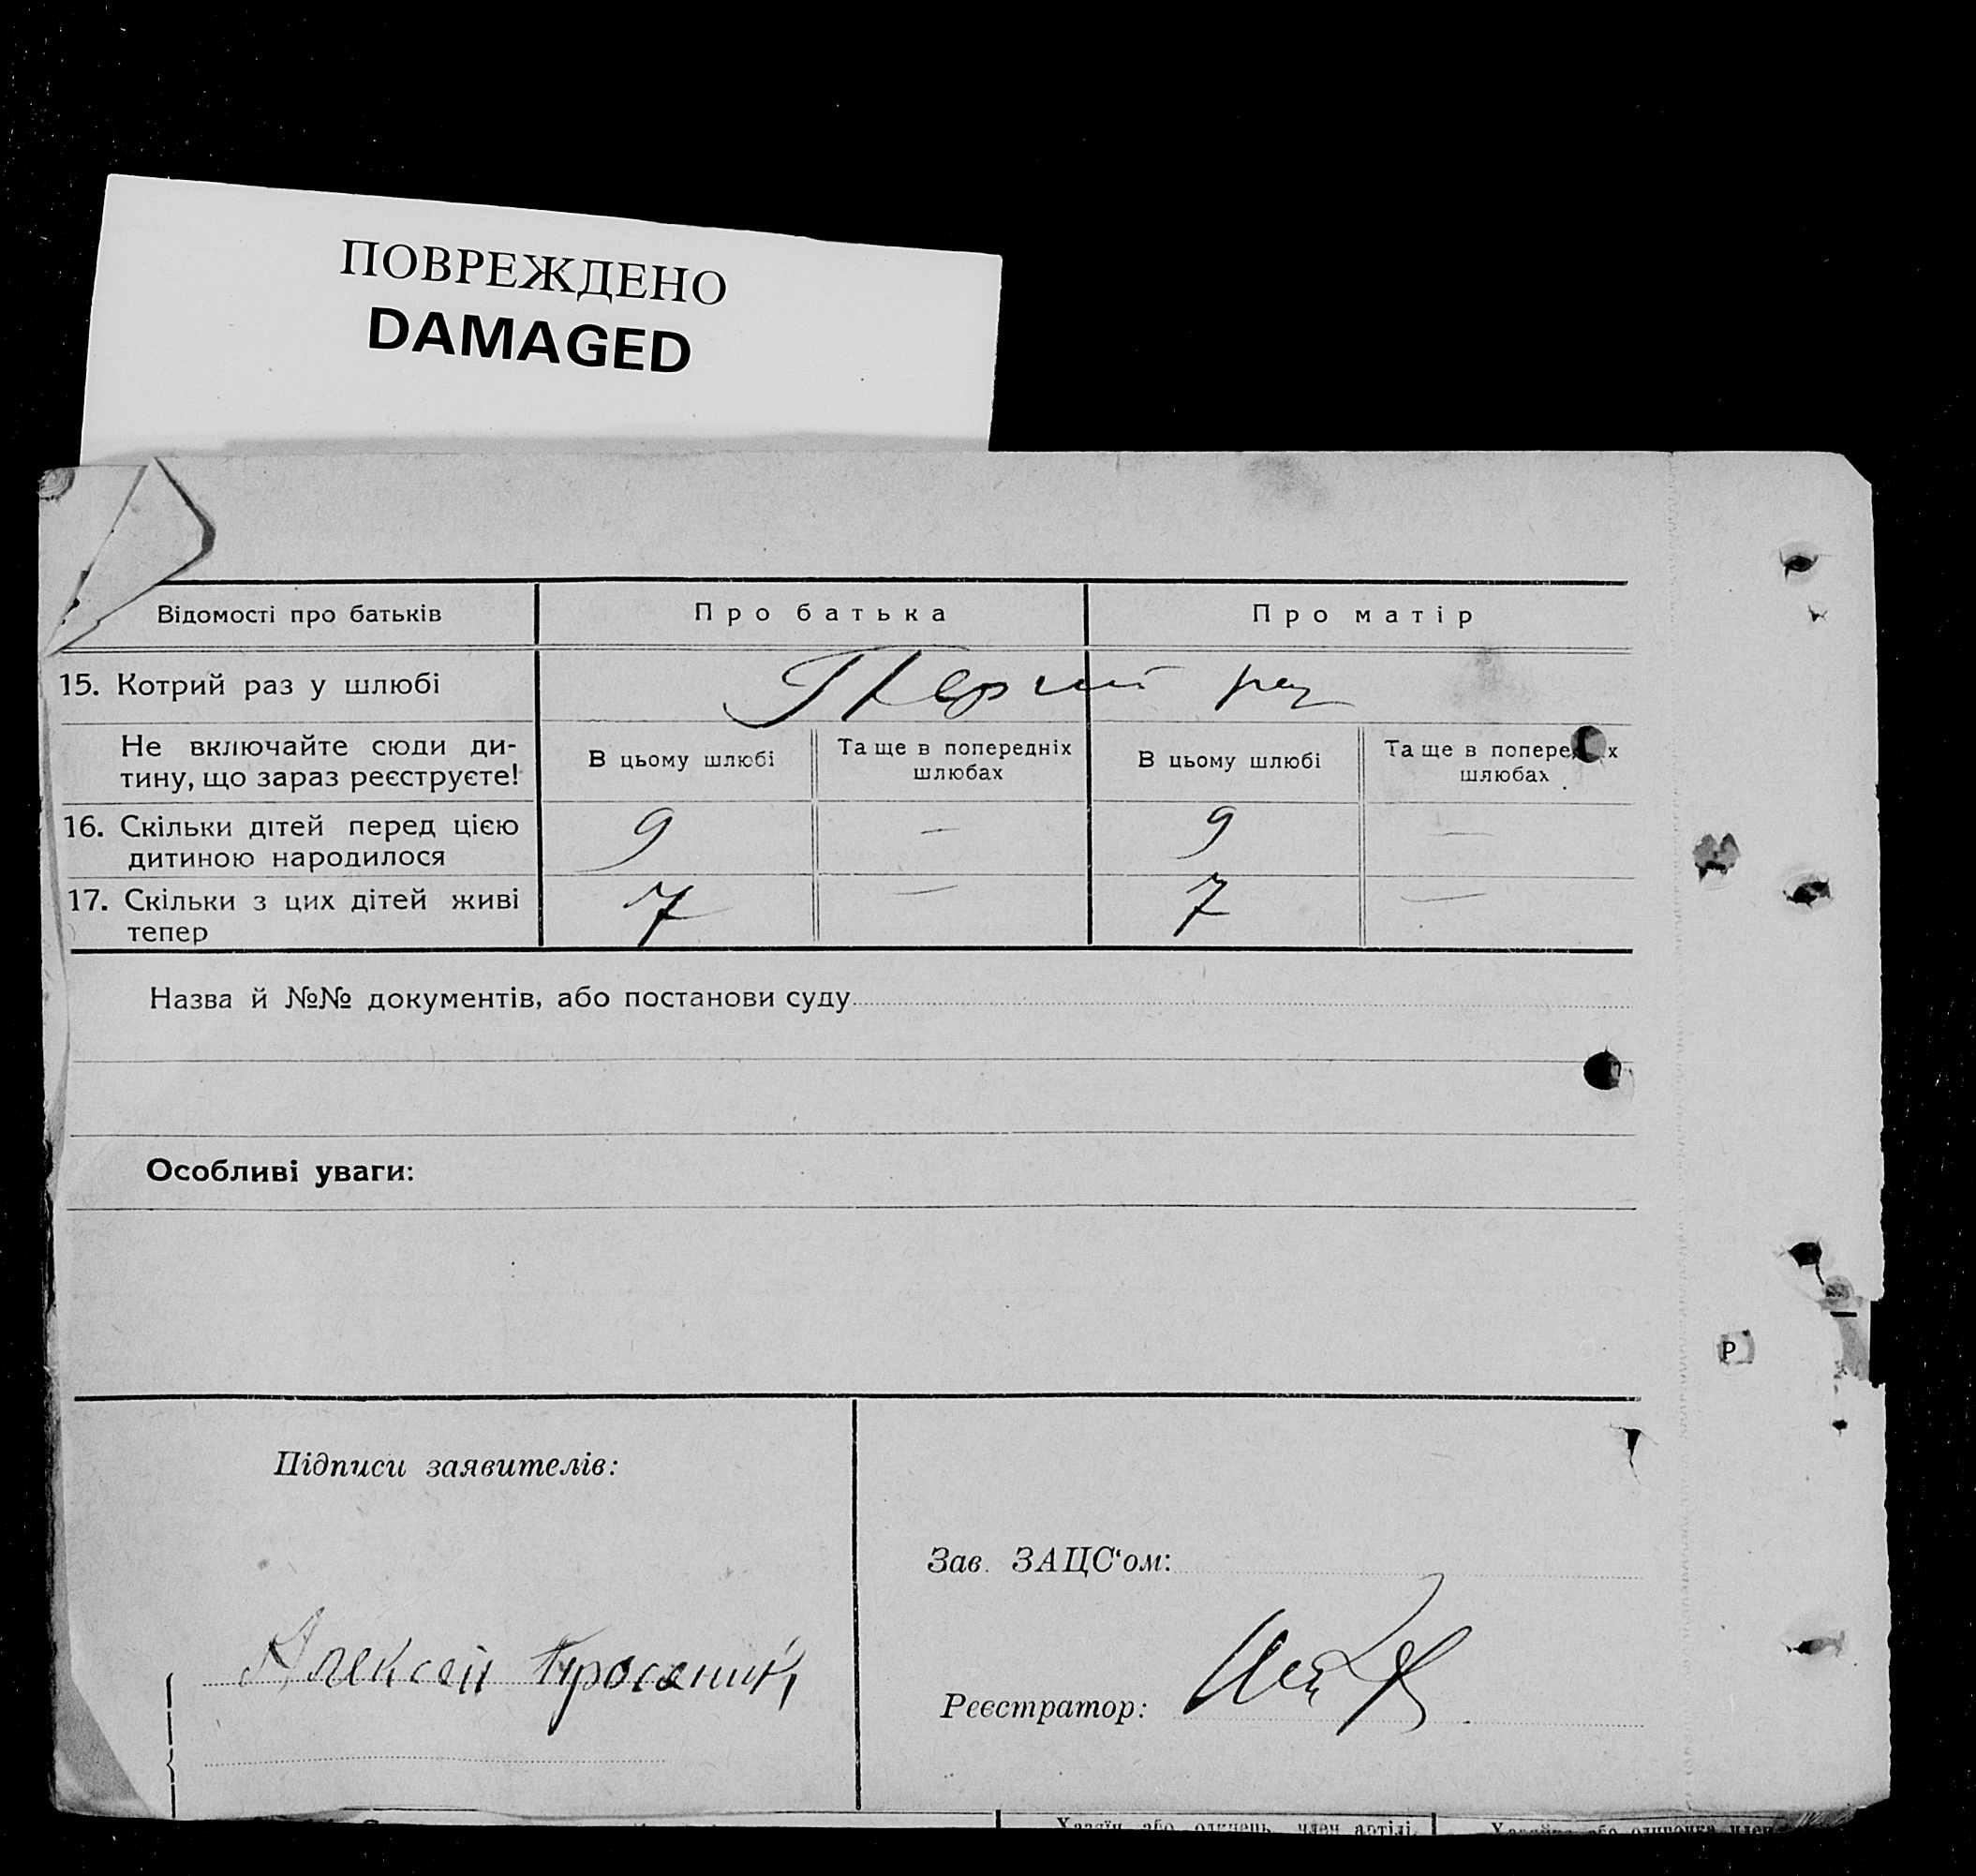 ПОВРЕЖДЕНО
DAMAGED
Відомості про батьків
Про батька
Про матір
15. Котрий раз у шлюбі
Перший раз
Не включайте сюди ди-
тину, що зараз реєструєте!
В цьому шлюбі
Та ще в попередніх
шлюбах
В цьому шлюбі
Та ще в попере х
шлюбах
16. Скільки дітей перед цією
дитиною народилося
9
—
9
—
17. Скільки з цих дітей живі
тепер
7
—
7
—
Назва й №№ документів, або постанови суду
Особливі уваги:
Р
Підписи заявителів:
Алексей
Зав. ЗАЦС‘ом:
Реєстратор:
Хазяїн або одинець, член артілі,